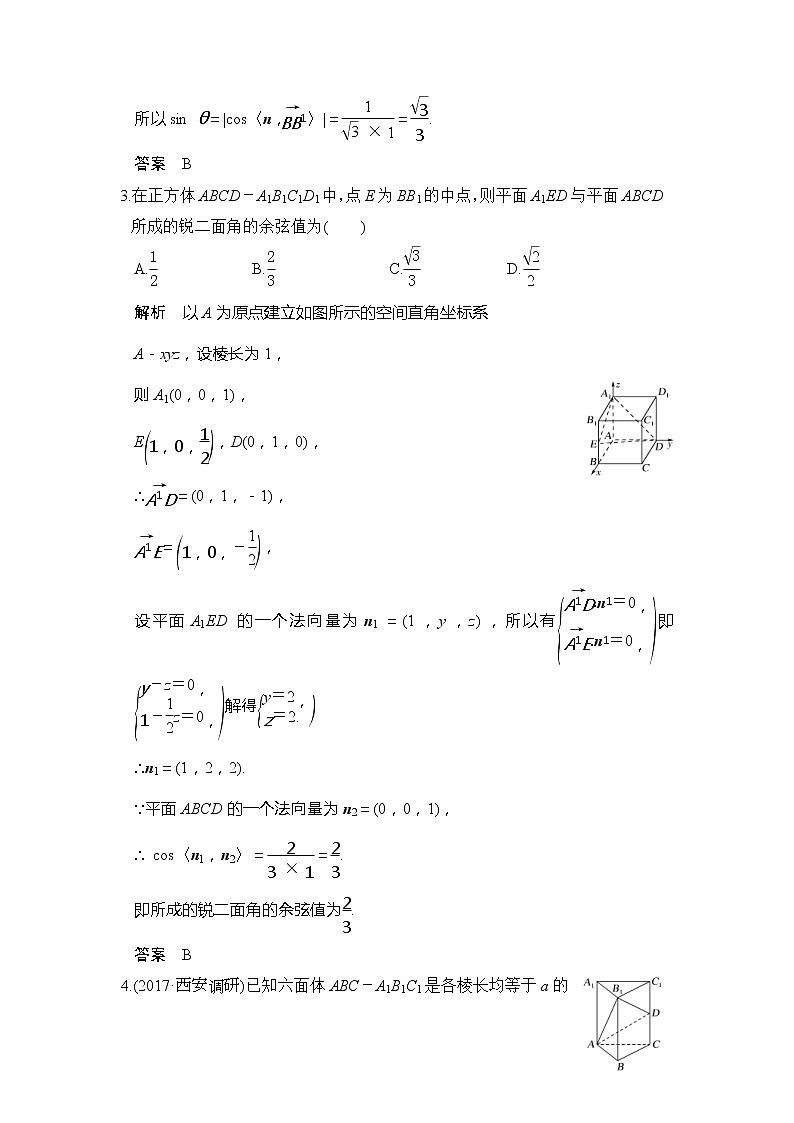 所以 sin θ=|cos〈n,BB1→〉|=1/(√3×1)=√3/3.
答案 B
3.在正方体ABCD-A₁B₁C₁D₁中,点E为BB₁的中点,则平面A₁ED与平面ABCD
所成的锐二面角的余弦值为( )
A.1/2 B.2/3 C.√3/3 D.√2/2
解析 以A为原点建立如图所示的空间直角坐标系
A-xyz,设棱长为1,
则A₁(0,0,1),
E(1,0,1/2),D(0,1,0),
∴A1D→=(0,1,-1),
A1E→=(1,0,-1/2),
设平面A₁ED的一个法向量为n₁=(1,y,z),所以有{A1D→·n1=0,A1E→·n1=0,)即
{y-z=0,1-1/2z=0,)解得{y=2,z=2.)
∴n₁=(1,2,2).
∵平面ABCD的一个法向量为n₂=(0,0,1),
∴ cos〈n₁,n₂〉=2/(3×1)=2/3.
即所成的锐二面角的余弦值为2/3.
答案 B
4.(2017·西安调研)已知六面体ABC-A₁B₁C₁是各棱长均等于a的
z
A₁
D₁
B₁
C₁
A
E
D
y
B
C
x
A₁
C₁
B₁
D
A
C
B